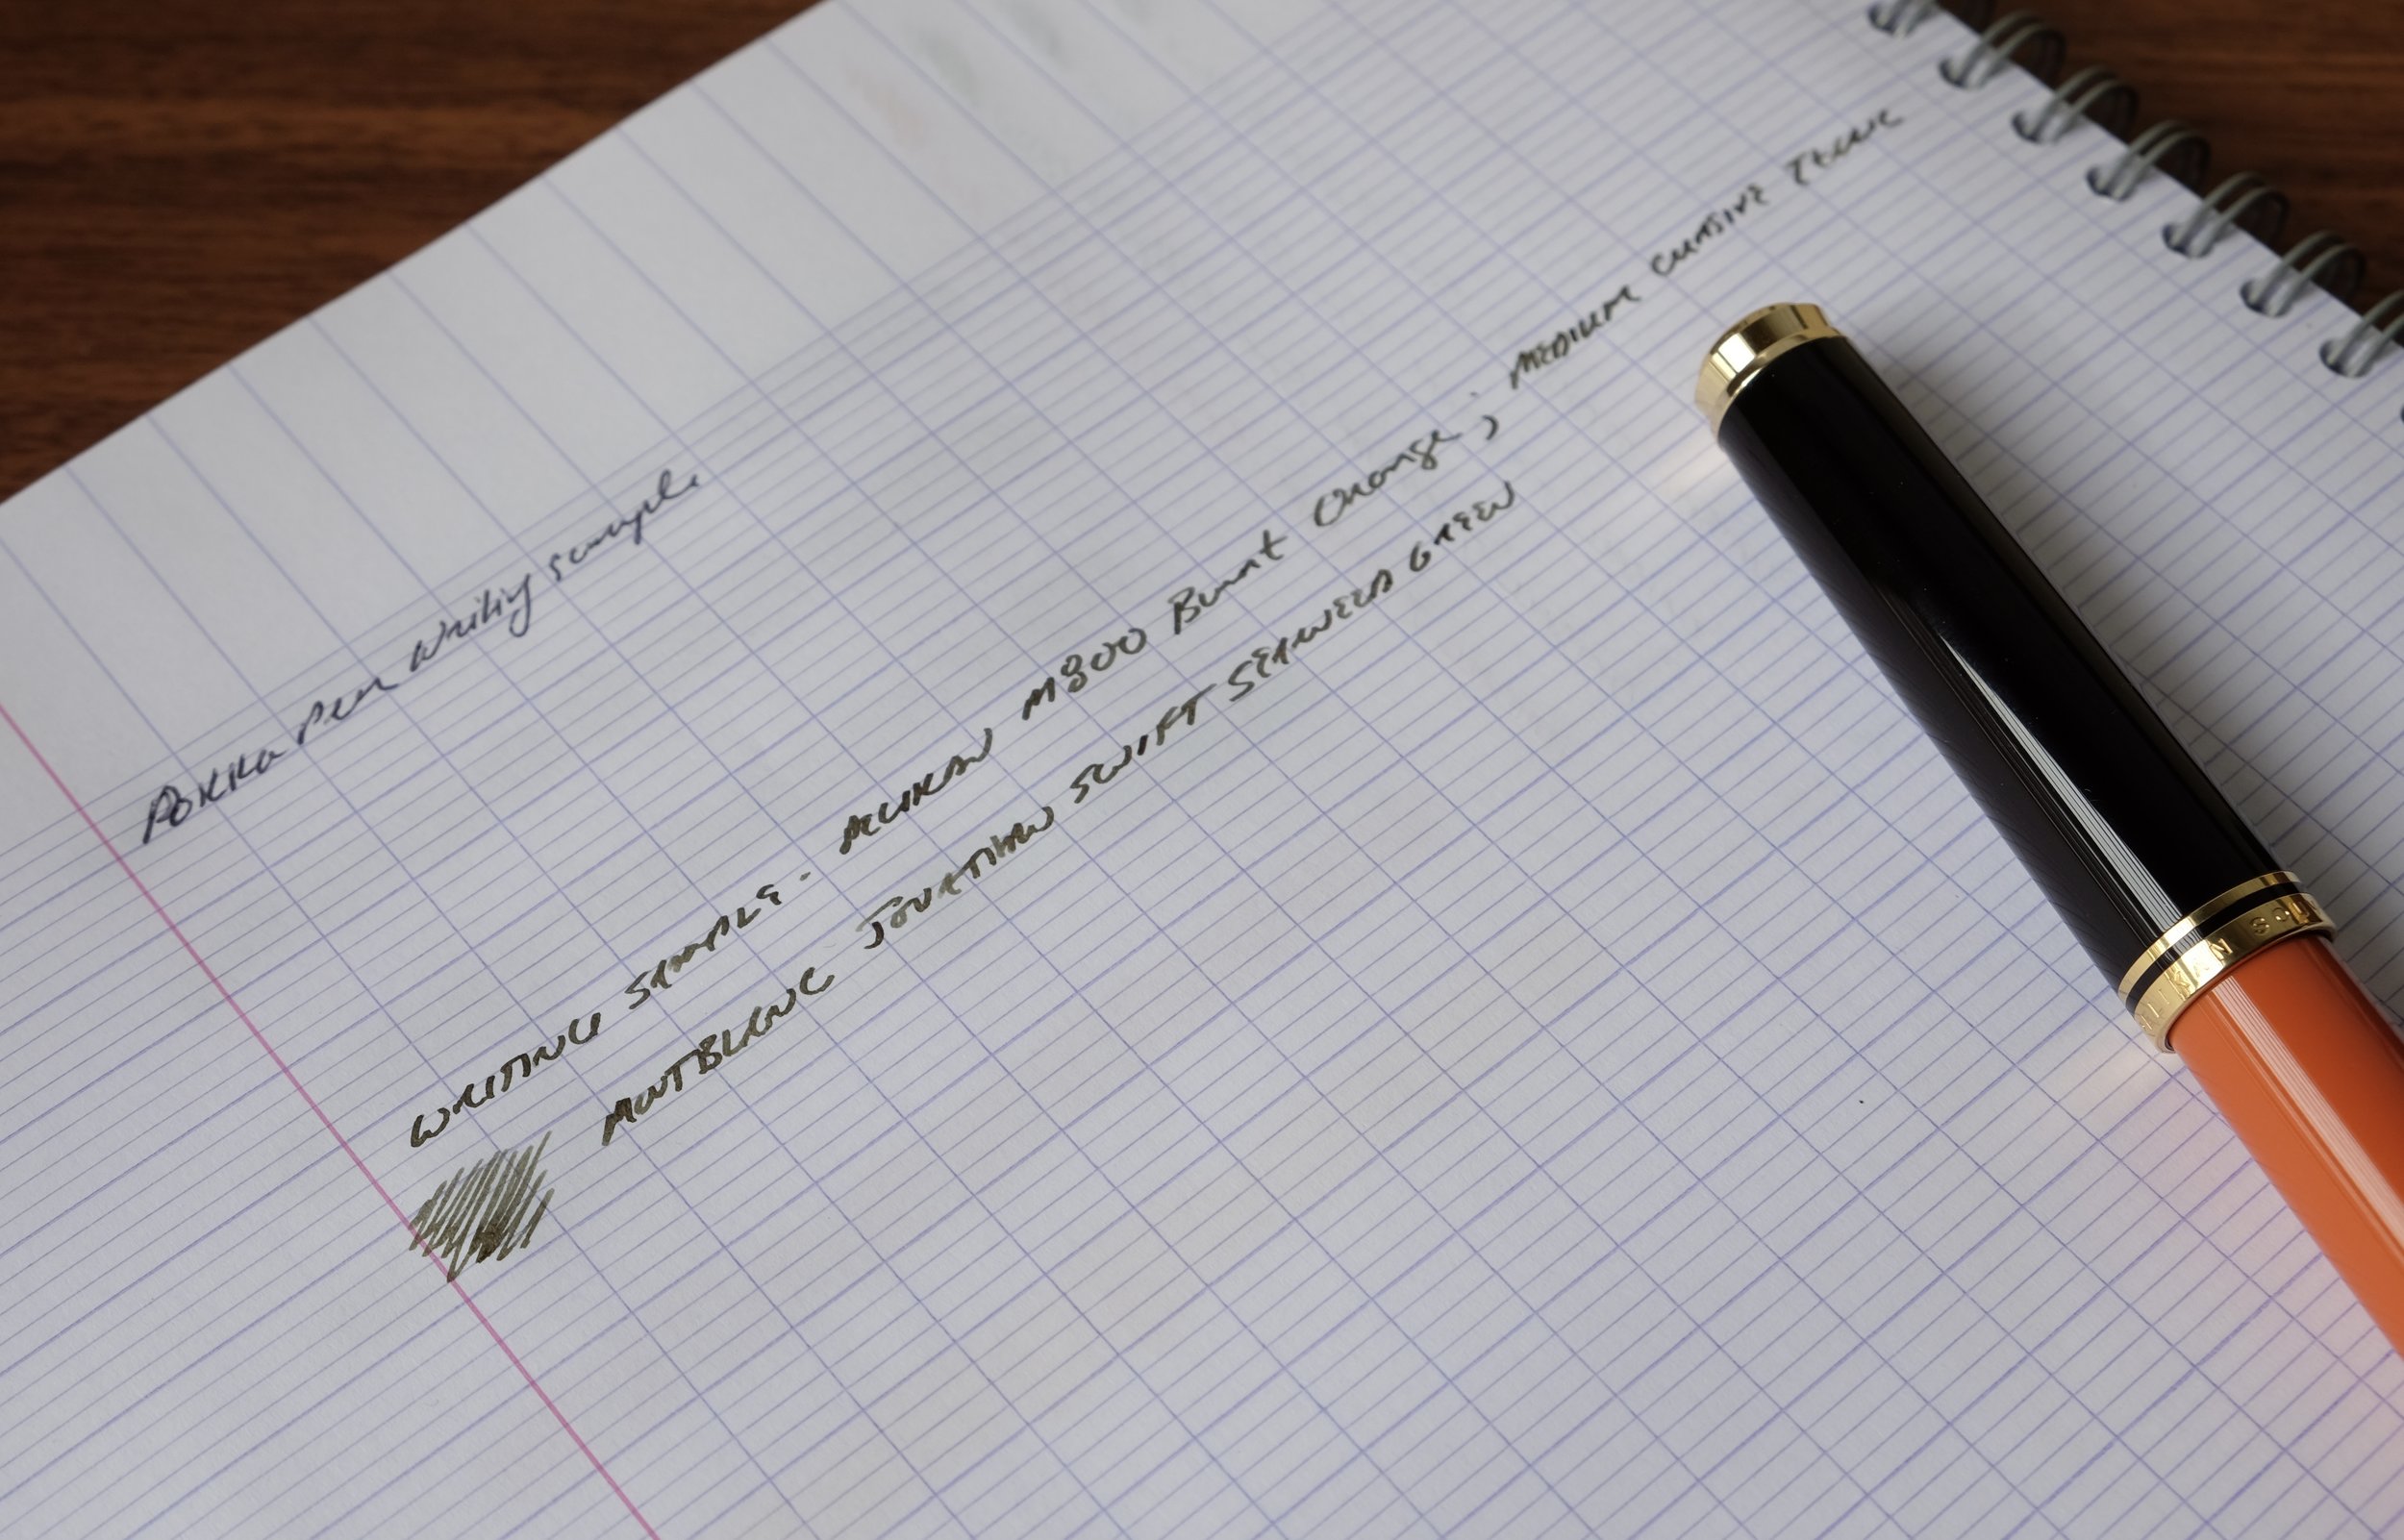 Pokka Pen Writing sample
WRITING SAMPLE - PELIKAN M800 Burnt Orange; MEDIUM CURSIVE ITALIC
MONTBLANC JONATHAN SWIFT SEAWEED GREEN
PELIKAN SOU